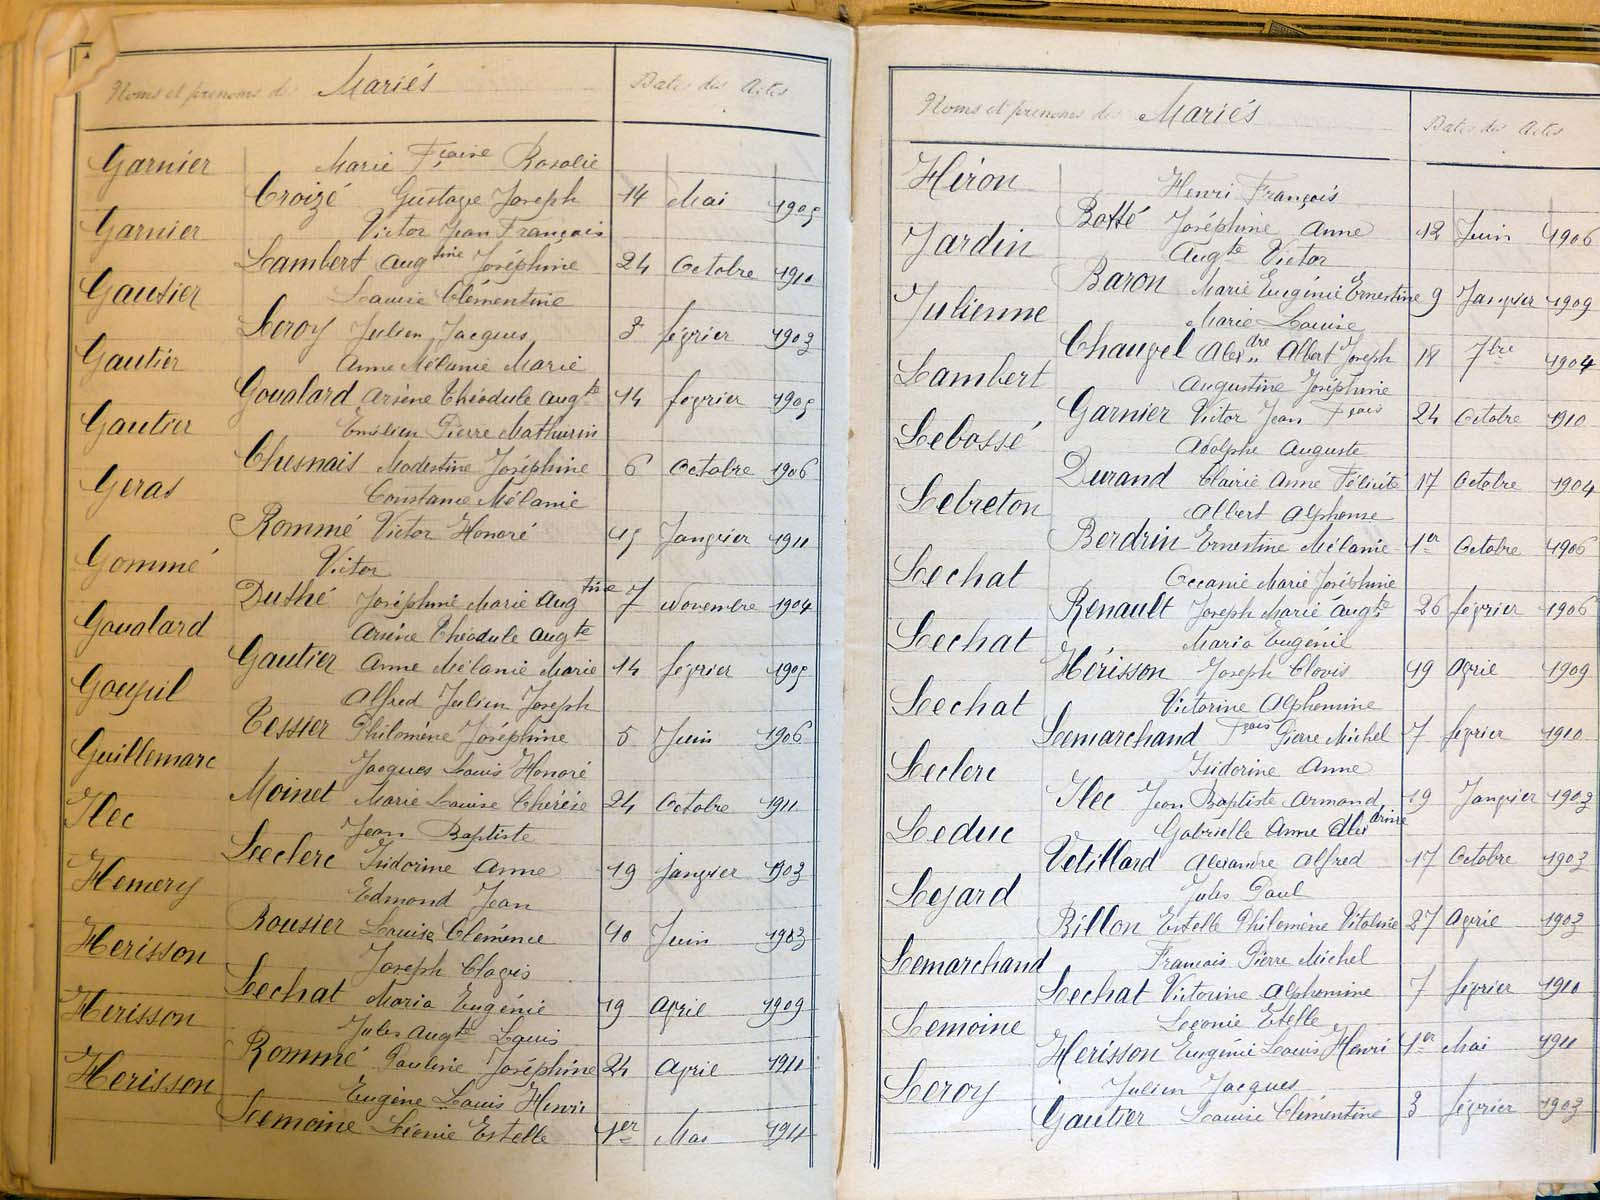 Noms et prénoms de Mariés Dates des Actes
Garnier Marie Fçoise Rosalie
Croizé Gustave Joseph 14 Mai 1905
Garnier Victor Jean François
Lambert Augtine Joséphine 24 Octobre 1910
Gautier Louise Clémentine
Leroy Julien Jacques 3 février 1903
Gautier Anne Mélanie Marie
Goualard Arsène Théodule Augte 14 février 1905
Gautier Emilien Pierre Mathurin
Chesnais Modestine Joséphine 6 Octobre 1906
Geras Constance Mélanie
Rommé Victor Honoré 15 Janvier 1911
Gommé Victor
Duthé Joséphine Marie Augtine 7 Novembre 1904
Goualard Arsène Théodule Augte
Gautier Anne Mélanie Marie 14 février 1905
Goupil Alfred Julien Joseph
Tessier Philomène Joséphine 5 Juin 1906
Guillemare Jacques Louis Honoré
Moinet Marie Louise Thérèse 24 Octobre 1911
Ilec Jean Baptiste
Leclerc Isidorine Anne 19 janvier 1903
Hemery Edmond Jean
Rousier Louise Clémence 10 Juin 1903
Herisson Joseph Clovis
Lechat Maria Eugénie 19 Avril 1909
Herisson Jules Augte Louis
Rommé Pauline Joséphine 24 Avril 1911
Herisson Eugène Louis Henri
Lemoine Léonie Estelle 1er Mai 1911
Noms et prénoms des Mariés Dates des Actes
Hiron Henri François
Botté Joséphine Anne 12 Juin 1906
Jardin Augte Victor
Baron Marie Eugénie Ernestine 9 Janvier 1909
Julienne Marie Louise
Chauvel Alexdre Albert Joseph 18 7bre 1904
Lambert Augustine Joséphine
Garnier Victor Jean Fçois 24 Octobre 1910
Lebossé Adolphe Auguste
Durand Clairie Anne Félicité 17 Octobre 1904
Lebreton Albert Alphonse
Berdrin Ernestine Mélanie 1er Octobre 1906
Lechat Occanie Marie Joséphine
Renault Joseph Marie Augte 26 février 1906
Lechat Maria Eugénie
Hérisson Joseph Clovis 19 Avril 1909
Lechat Victorine Alphonsine
Lemarchand Fçois Pierre Michel 7 février 1910
Leclerc Isidorine Anne
Ilec Jean Baptiste Armand 19 Janvier 1903
Leduc Gabrielle Anne Alexdrine
Vetillard Alexandre Alfred 17 Octobre 1903
Lejard Jules Paul
Billon Estelle Philomène Vitaline 27 Avril 1903
Lemarchand Francois Pierre Michel
Lechat Victorine Alphonsine 7 février 1910
Lemoine Léonie Estelle
Herisson Eugénie Louis Henri 1er Mai 1911
Leroy Julien Jacques
Gautier Louise Clémentine 3 février 1903